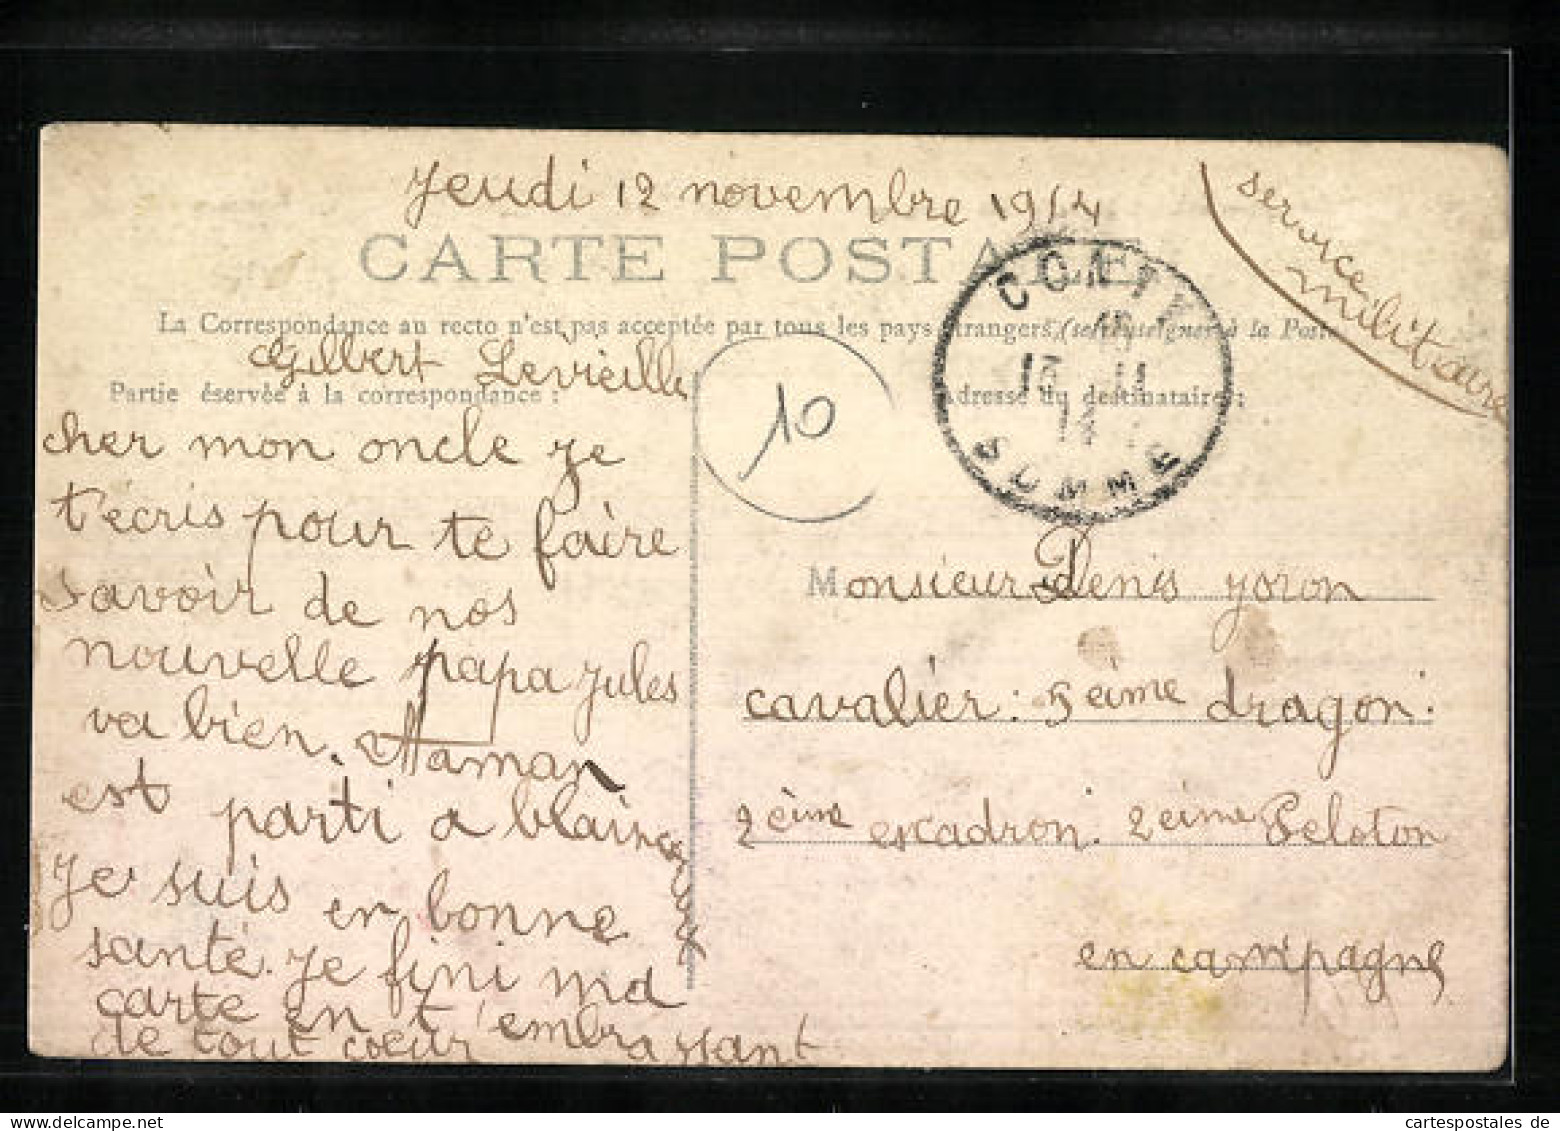 Jeudi 12 novembre 1914
service
militaire
CARTE POSTALE
La Correspondance au recto n'est pas acceptée par tous les pays étrangers (se renseigner à la Poste
Gilbert Levieille
Partie éservée à la correspondance :
cher mon oncle je
t'écris pour te faire
savoir de nos
nouvelle papa jules
va bien. Maman
est parti a blaincourt
Je suis en bonne
santé. Je fini ma
carte en t'embrassant
de tout coeur
10
CONTY
13 11
14
SOMME
Adresse du destinataire :
Monsieur Denis yoron
cavalier : 5 eime dragon.
2 ème escadron. 2 eime Peloton
en campagne
cartespostales de